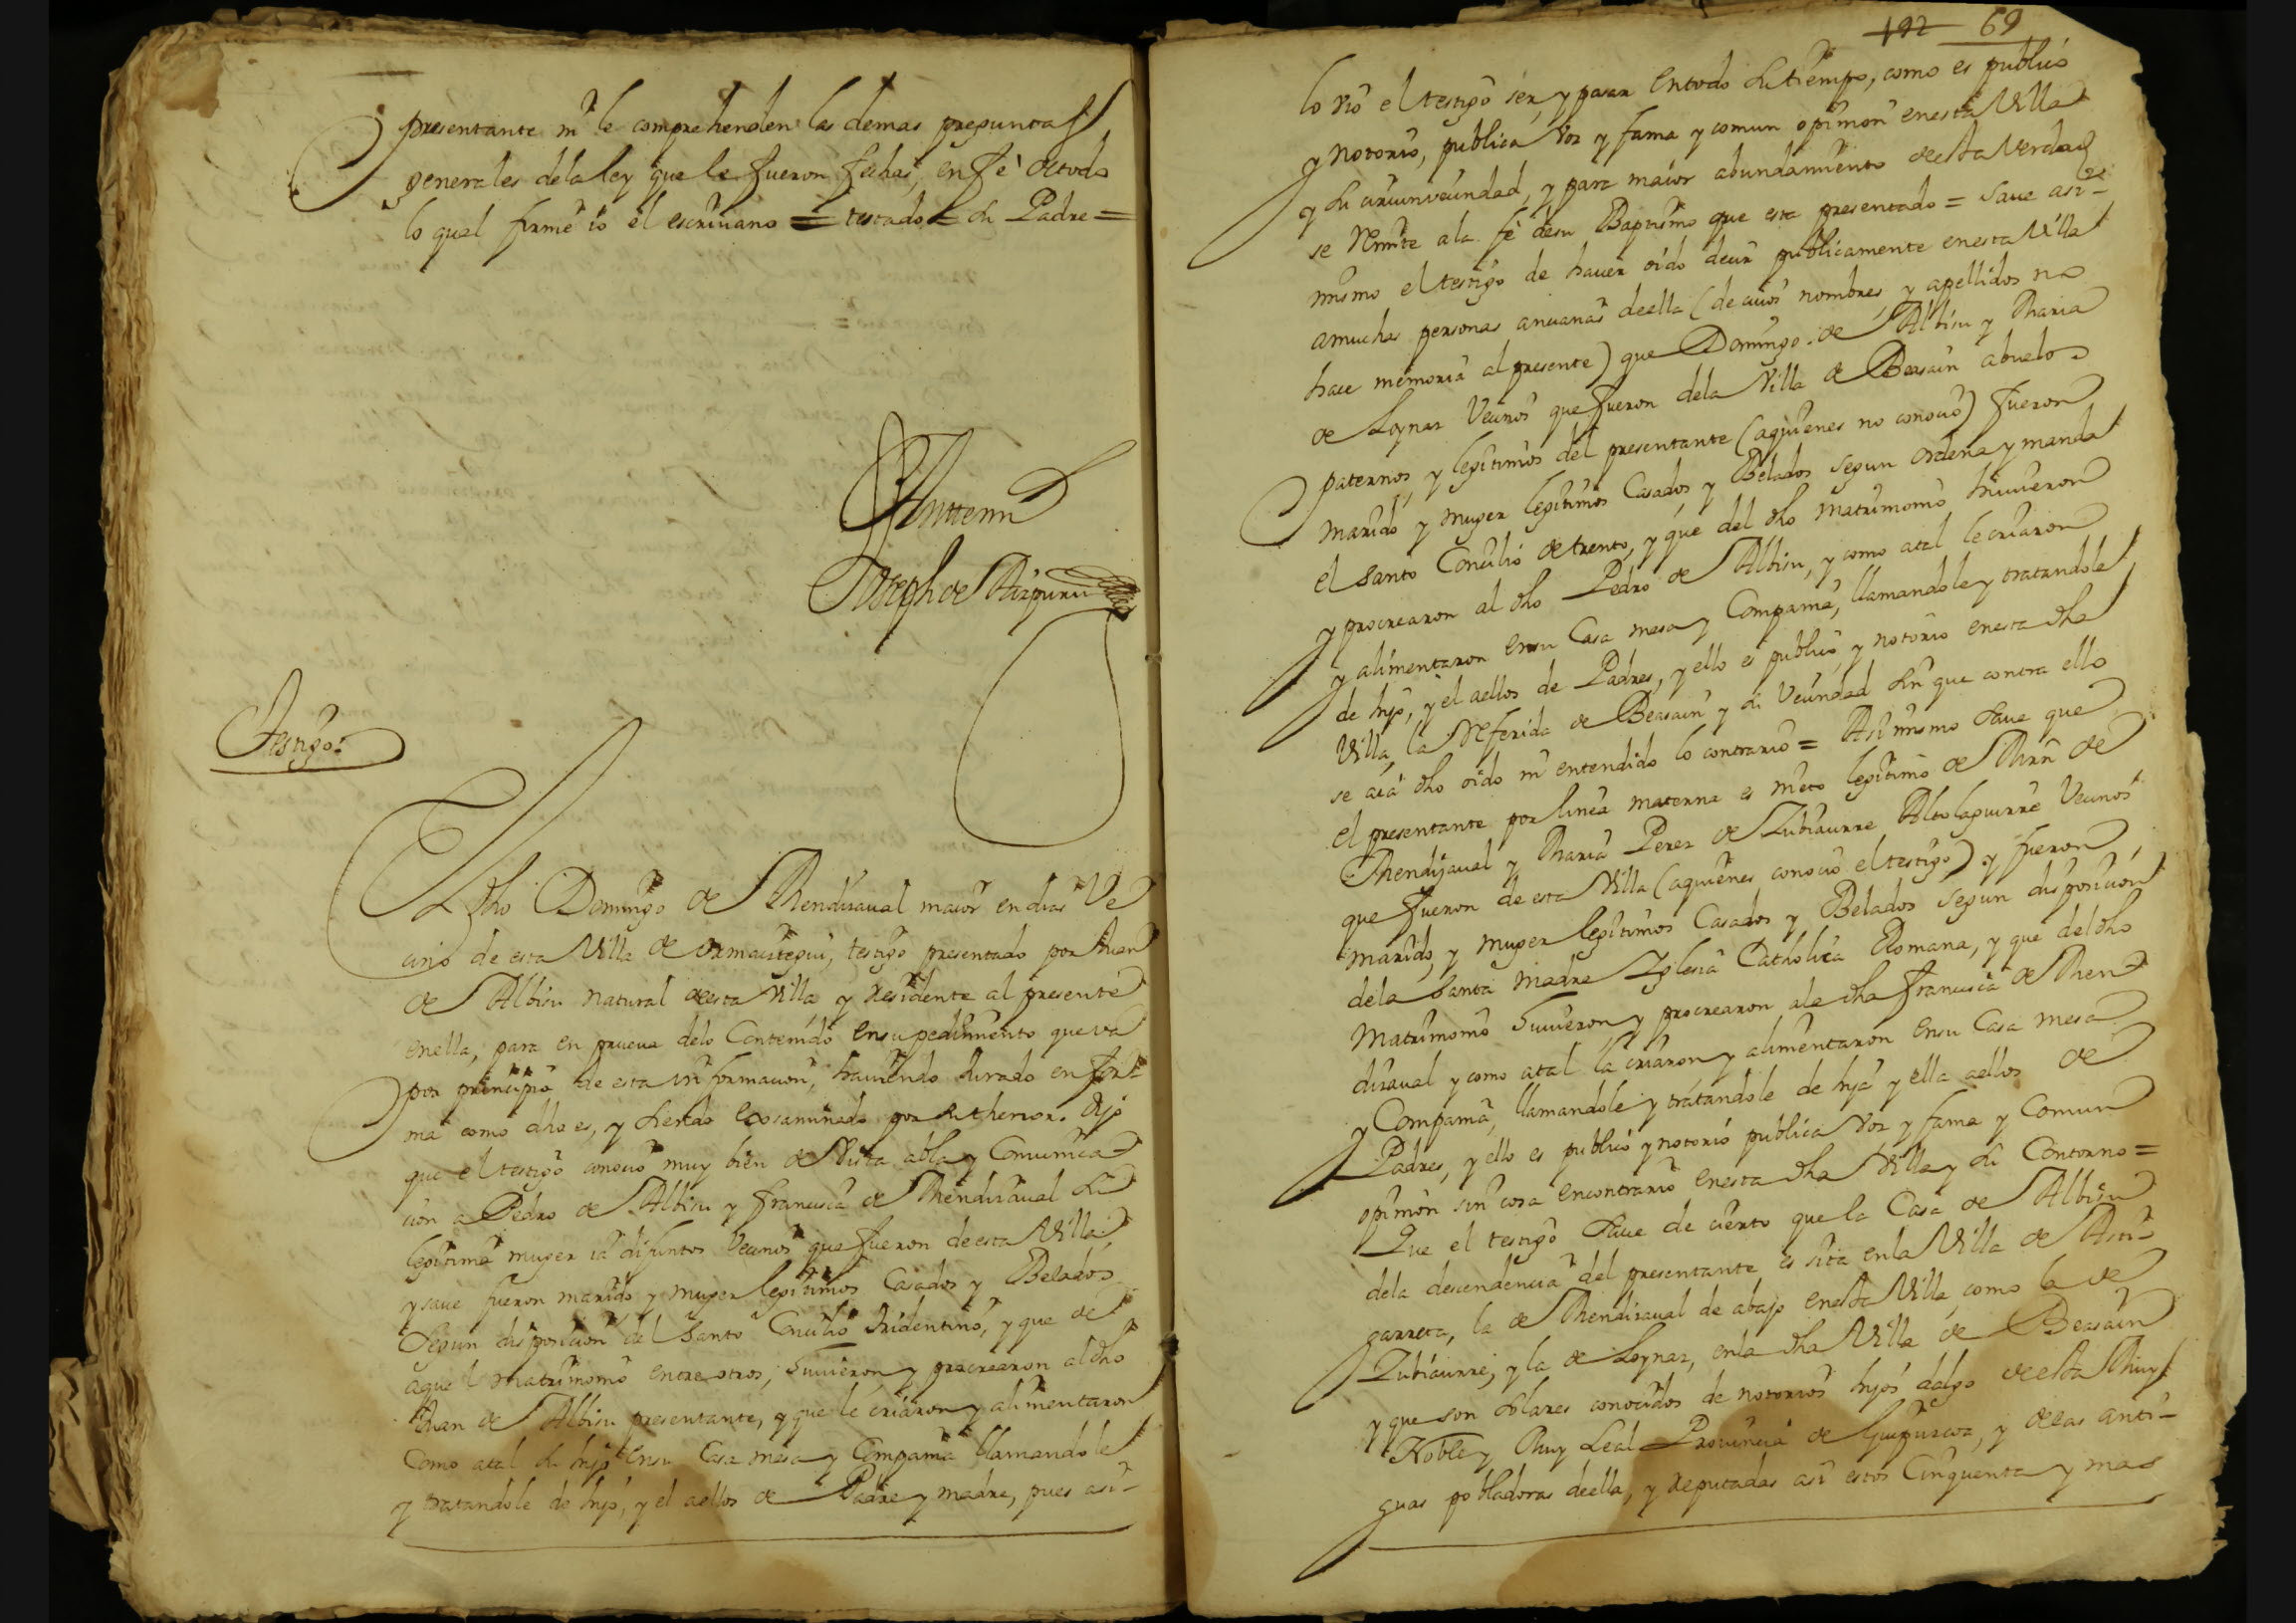 presentante ni le comprehenden las demas preguntas
generales dela ley que le fueron fechas, en fe de todo
lo qual firme io el escrivano = testado = su Padre =
Antemi
Joseph de Aizpuru
Testigo.
El dho Domingo de Mendizaval maior en dias Ve
cino de esta Villa de Ormaiztegui, testigo presentado por Juan
de Albisu natural de esta Villa y Residente al presente
enella, para en prueva delo Contenido ensu pedimiento que va
por principio de esta informacion, haviendo Jurado en for-
ma como dho es, y siendo exsaminado por su thenor. Dijo
que el testigo conocio muy bien de Vista abla y Comunica
cion a Pedro de Albisu y francisca de Mendizaval su
legitima muger ia difuntos Vecinos que fueron de esta Villa
y save fueron marido y muger legitimos Casados y Belados
Segun disposicion del Santo Concilio Tridentino, y que de
aquel matrimonio entre otros, Tuvieron y procrearon al dho
Juan de Albisu presentante, y que le criaron y alimentaron
Como atal su hijo ensu Casa mesa y Compania llamandole
y tratandole de hijo, y el aellos de Padre y madre, pues asi-
192 69
lo vio el testigo ser, y pasar entodo su tiempo, como es publico
y notorio, publica Voz y fama y comun opinion enesta Villa
y su circunvecindad, y para maior abundamiento de esta Verdad
se Remite ala fe desu Baptismo que esta presentado = Save asi-
mismo el testigo de haver oido decir publicamente enesta Villa
amuchas personas ancianas deella (de cuios nombres, y apellidos no
hace memoria al presente) que Domingo de Albisu y Maria
de Loynaz Vecinos que fueron dela Villa de Beasain abuelos
paternos, y legitimos del presentante (aquienes no conocio) fueron
marido y muger legitimos Casados y Belados segun ordena y manda
el santo Concilio de trento, y que del dho matrimonio huvieron
y procrearon al dho Pedro de Albisu, y como atal le criaron
y alimentaron ensu Casa mesa y Compania, llamandole y tratandole
de hijo, y el aellos de Padres, y ello es publico, y notorio enesta dha
Villa, la Referida de Beasain y su Vecindad sin que contra ello
se aia dho oido ni entendido lo contrario = Asi mismo save que
el presentante por linea materna es nieto legitimo de Mrn de
Mendizaval y Maria Perez de Zubiaurre Altolaguirre Vecinos
que fueron de esta Villa (aquienes conocio el testigo) y fueron
marido, y muger legitimos Casados y Belados segun disposicion
dela Santa madre Iglesia Catholica Romana, y que del dho
Matrimonio Tuvieron y procrearon ala dha francisca de Men
dizaval y como atal la criaron y alimentaron ensu Casa mesa
y Compania, llamandole y tratandole de hija y ella aellos de
Padres, y ello es publico y notorio publica Voz y fama y Comun
opinion sin cosa encontrario enesta dha Villa y su Contorno =
Que el testigo save de cierto que la Casa de Albisu
dela descendencia del presentante es sita enla Villa de Asti-
garreta, la de Mendizaval de abajo enesta Villa, como la de
Zubiaurre, y la de Loynaz, enla dha Villa de Beasain
y que son solares conocidos de notorios hijos dalgo de esta Muy
Noble y Muy Leal Provincia de Guipuzcoa, y delas anti-
guas pobladoras deella, y Reputadas asi estos Cinquenta y mas